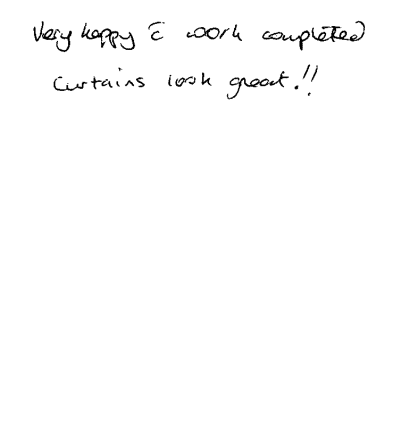 Very happy c̄ work completed
Curtains look great.!!